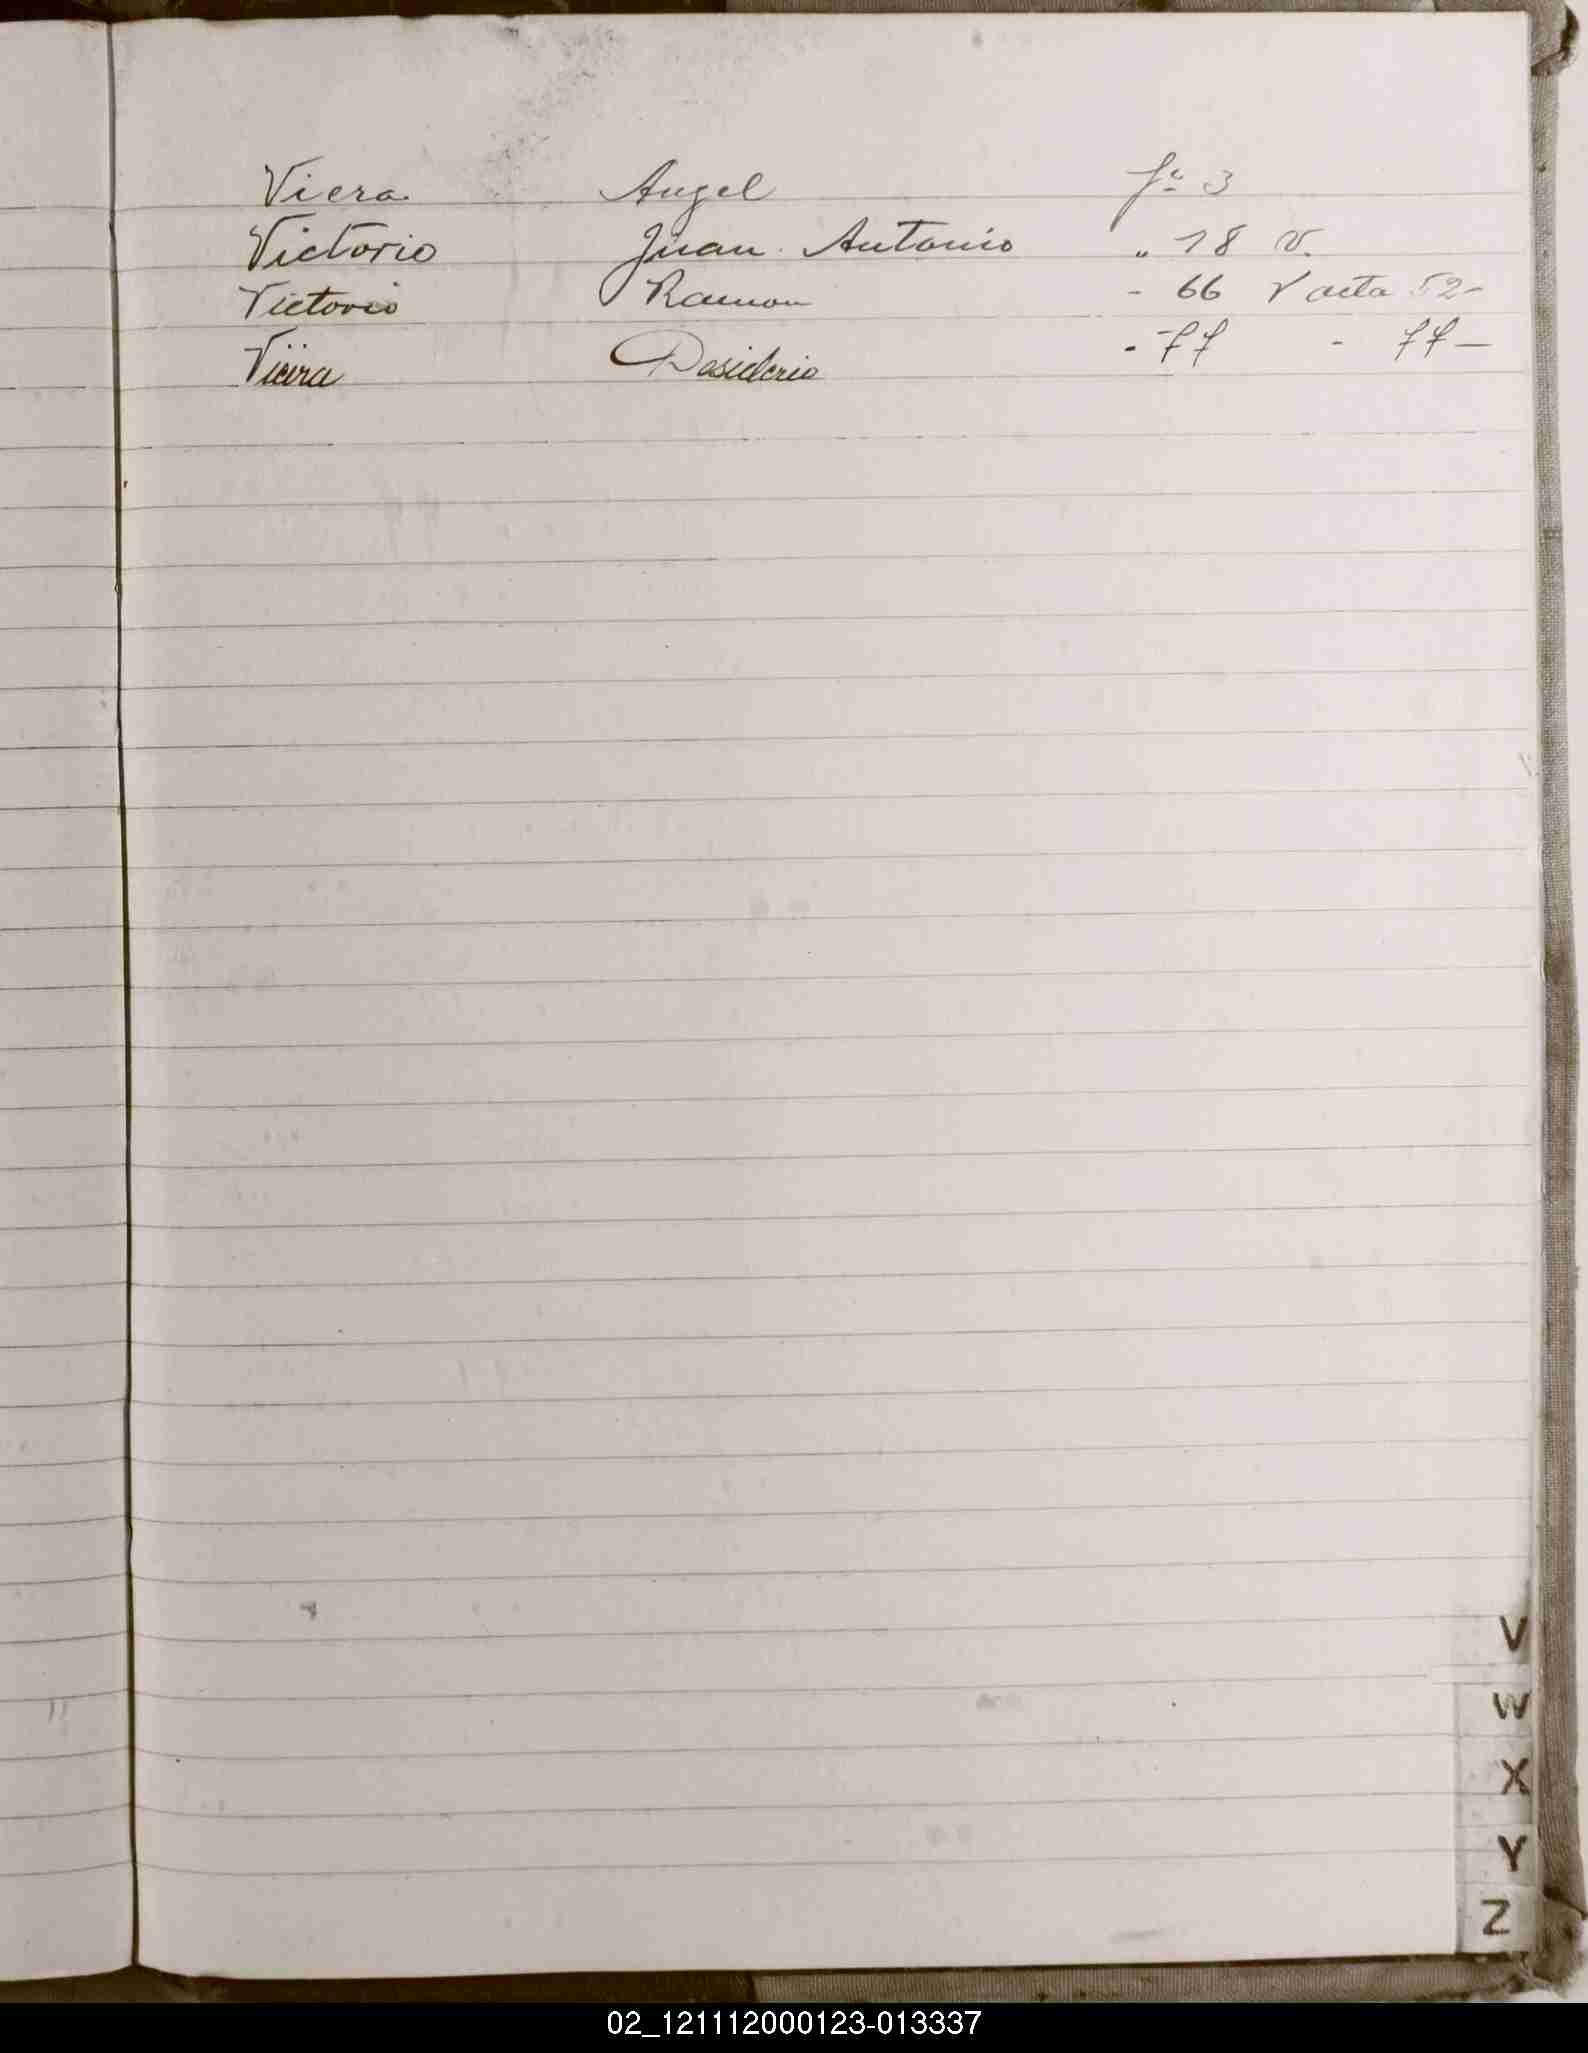 Viera Angel fº 3
Victorio Juan Antonio " 18 v.
Victorio Ramon - 66 V acta 52-
Vieira Desiderio - 77 - 77 —
V
W
X
Y
Z
02_121112000123-013337